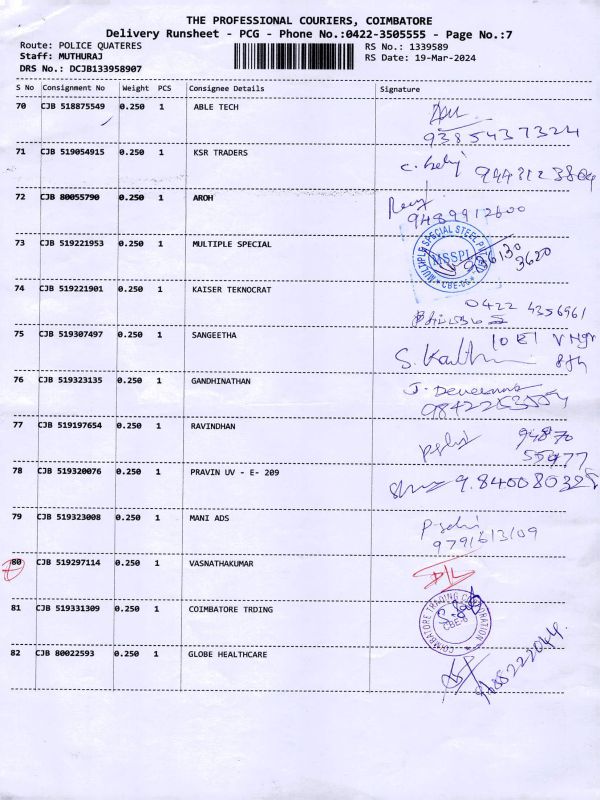 THE PROFESSIONAL COURIERS, COIMBATORE
Delivery Runsheet - PCG - Phone No.:0422-3505555 - Page No.:7
Route: POLICE QUATERES
RS No.: 1339589
Staff: MUTHURAJ
RS Date: 19-Mar-2024
DRS No.: DCJB133958907
S No Consignment No Weight PCS Consignee Details Signature
70 CJB 518875549 0.250 1 ABLE TECH
9385437324
71 CJB 519054915 0.250 1 KSR TRADERS
9443123804
72 CJB 80055790 0.250 1 AROH
9489912600
73 CJB 519221953 0.250 1 MULTIPLE SPECIAL
MULTIPLE SPECIAL STEEL
MSSPL
3620
74 CJB 519221901 0.250 1 KAISER TEKNOCRAT
0422 4356961
75 CJB 519307497 0.250 1 SANGEETHA
76 CJB 519323135 0.250 1 GANDHINATHAN
77 CJB 519197654 0.250 1 RAVINDHAN
94870
55977
78 CJB 519320076 0.250 1 PRAVIN UV - E- 209
79 CJB 519323008 0.250 1 MANI ADS
9791613109
80 CJB 519297114 0.250 1 VASNATHAKUMAR
81 CJB 519331309 0.250 1 COIMBATORE TRDING
COIMBATORE TRADING CORPORATION
82 CJB 80022593 0.250 1 GLOBE HEALTHCARE